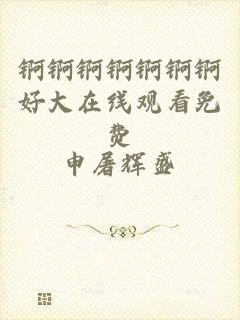 锕锕锕锕锕锕锕
好大在线观看免
费
申屠辉盛